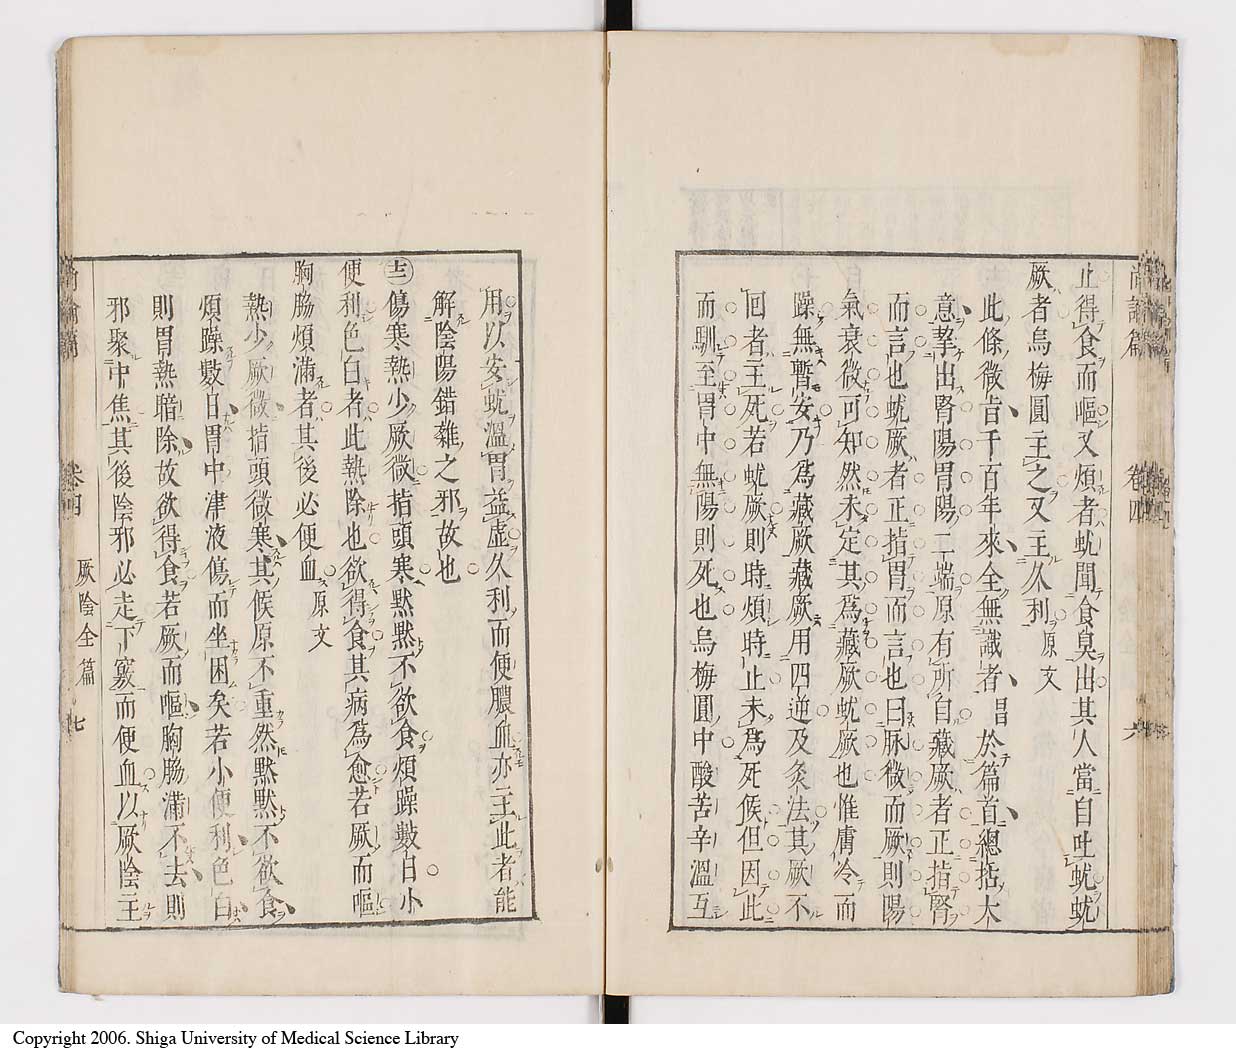 止得食而嘔又煩者蚘聞食臭出其人當自吐蚘蚘
厥者烏梅圓主之又主久利原文
此條微旨千百年來全無識者昌於篇首總括大
意挈出腎陽胃陽二端原有所自藏厥者正指腎
而言也蚘厥者正指胃而言也曰脉微而厥則陽
氣衰微可知然未定其爲藏厥蚘厥也惟膚冷而
躁無暫安乃爲藏厥藏厥用四逆及灸法其厥不
回者主死若蚘厥則時煩時止未爲死候但因此
而馴至胃中無陽則死也烏梅圓中酸苦辛溫互
用以安蚘溫胃益虛久利而便膿血亦主此者能
解陰陽錯雜之邪故也
十二傷寒熱少厥微指頭寒黙黙不欲食煩躁數日小
便利色白者此熱除也欲得食其病爲愈若厥而嘔
胸脇煩滿者其後必便血原文
熱少厥微指頭微寒其候原不重然黙黙不欲食
煩躁數日胃中津液傷而坐困矣若小便利色白
則胃熱暗除故欲得食若厥而嘔胸脇滿不去則
邪聚中焦其後陰邪必走下竅而便血以厥陰主
卷四
厥陰全篇
七
卷四
六
Copyright 2006. Shiga University of Medical Science Library